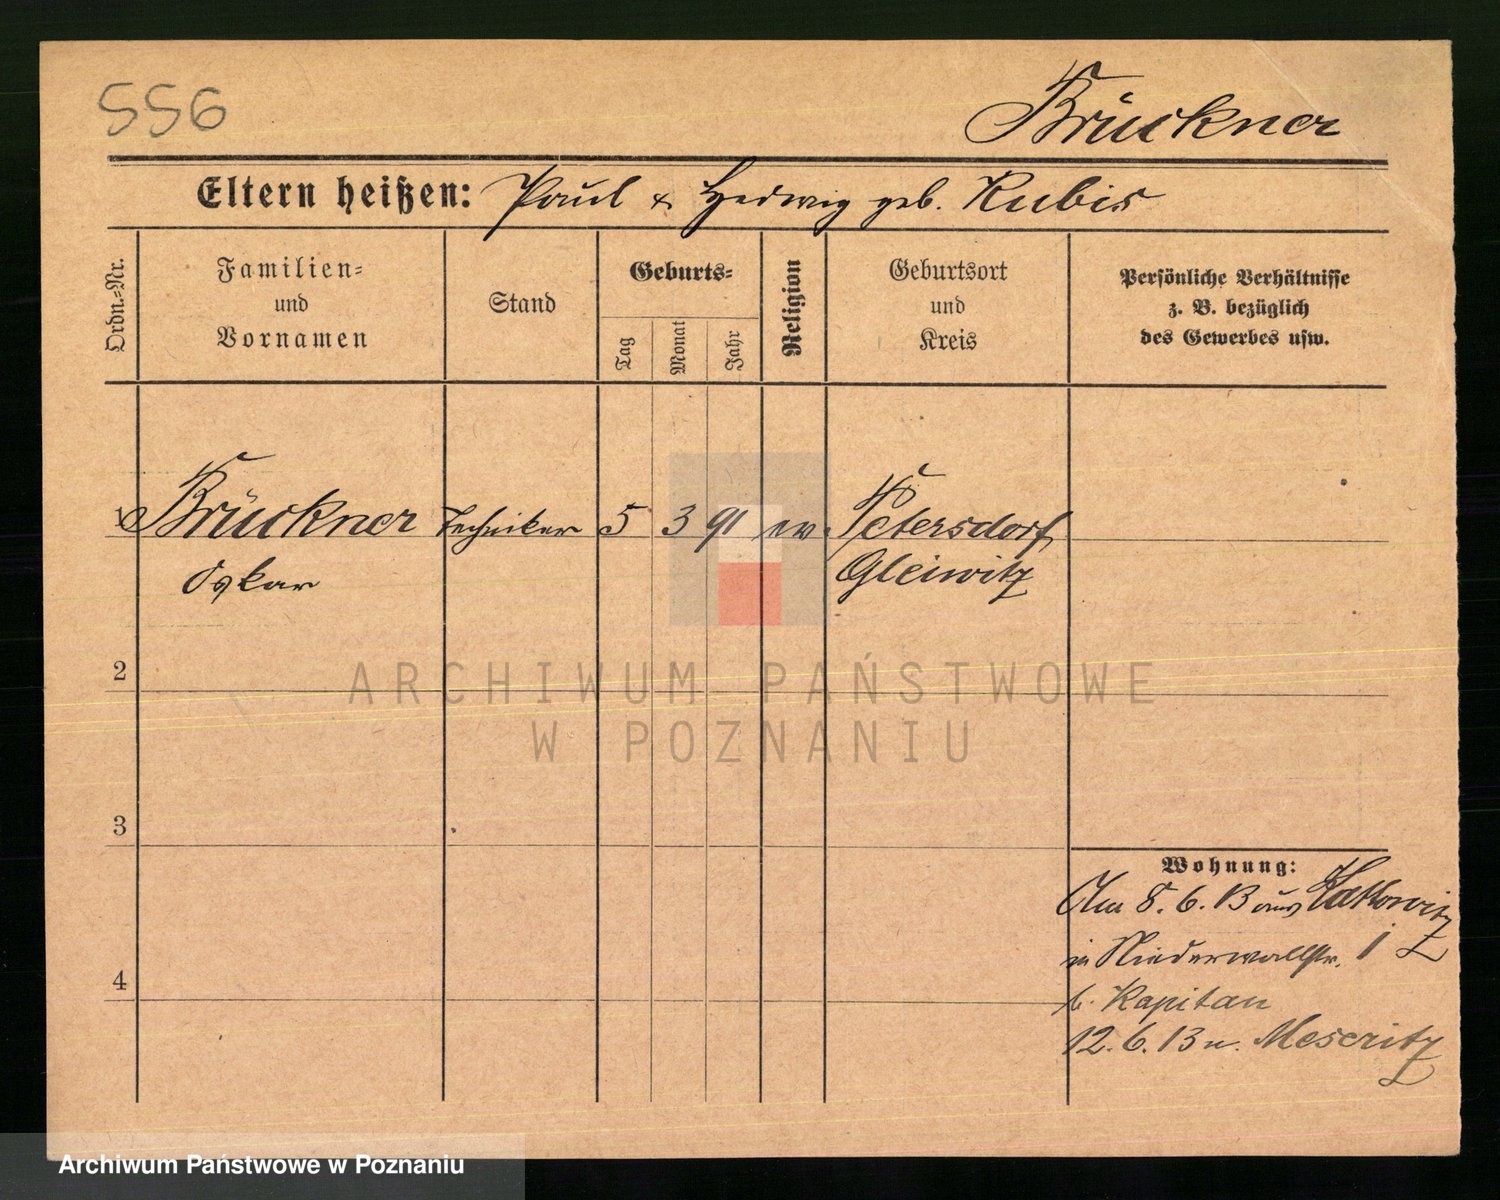 556
Brückner
Eltern heißen: Paul & Hedwig geb. Kubis
Ordn.=Nr.
Familien=
und
Vornamen
Stand
Geburts=
Tag
Monat
Jahr
Religion
Geburtsort
und
Kreis
Persönliche Verhältnisse
z. B. bezüglich
des Gewerbes usw.
1 Brückner Techniker 5 3 91 ev. Petersdorf
Oskar Gleiwitz
2
3
4
Wohnung:
Am 8. 6. 13 aus Kattowitz
in Niederwallstr. 1
b. Kapitan
12. 6. 13 n. Meseritz
ARCHIWUM PAŃSTWOWE
W POZNANIU
Archiwum Państwowe w Poznaniu